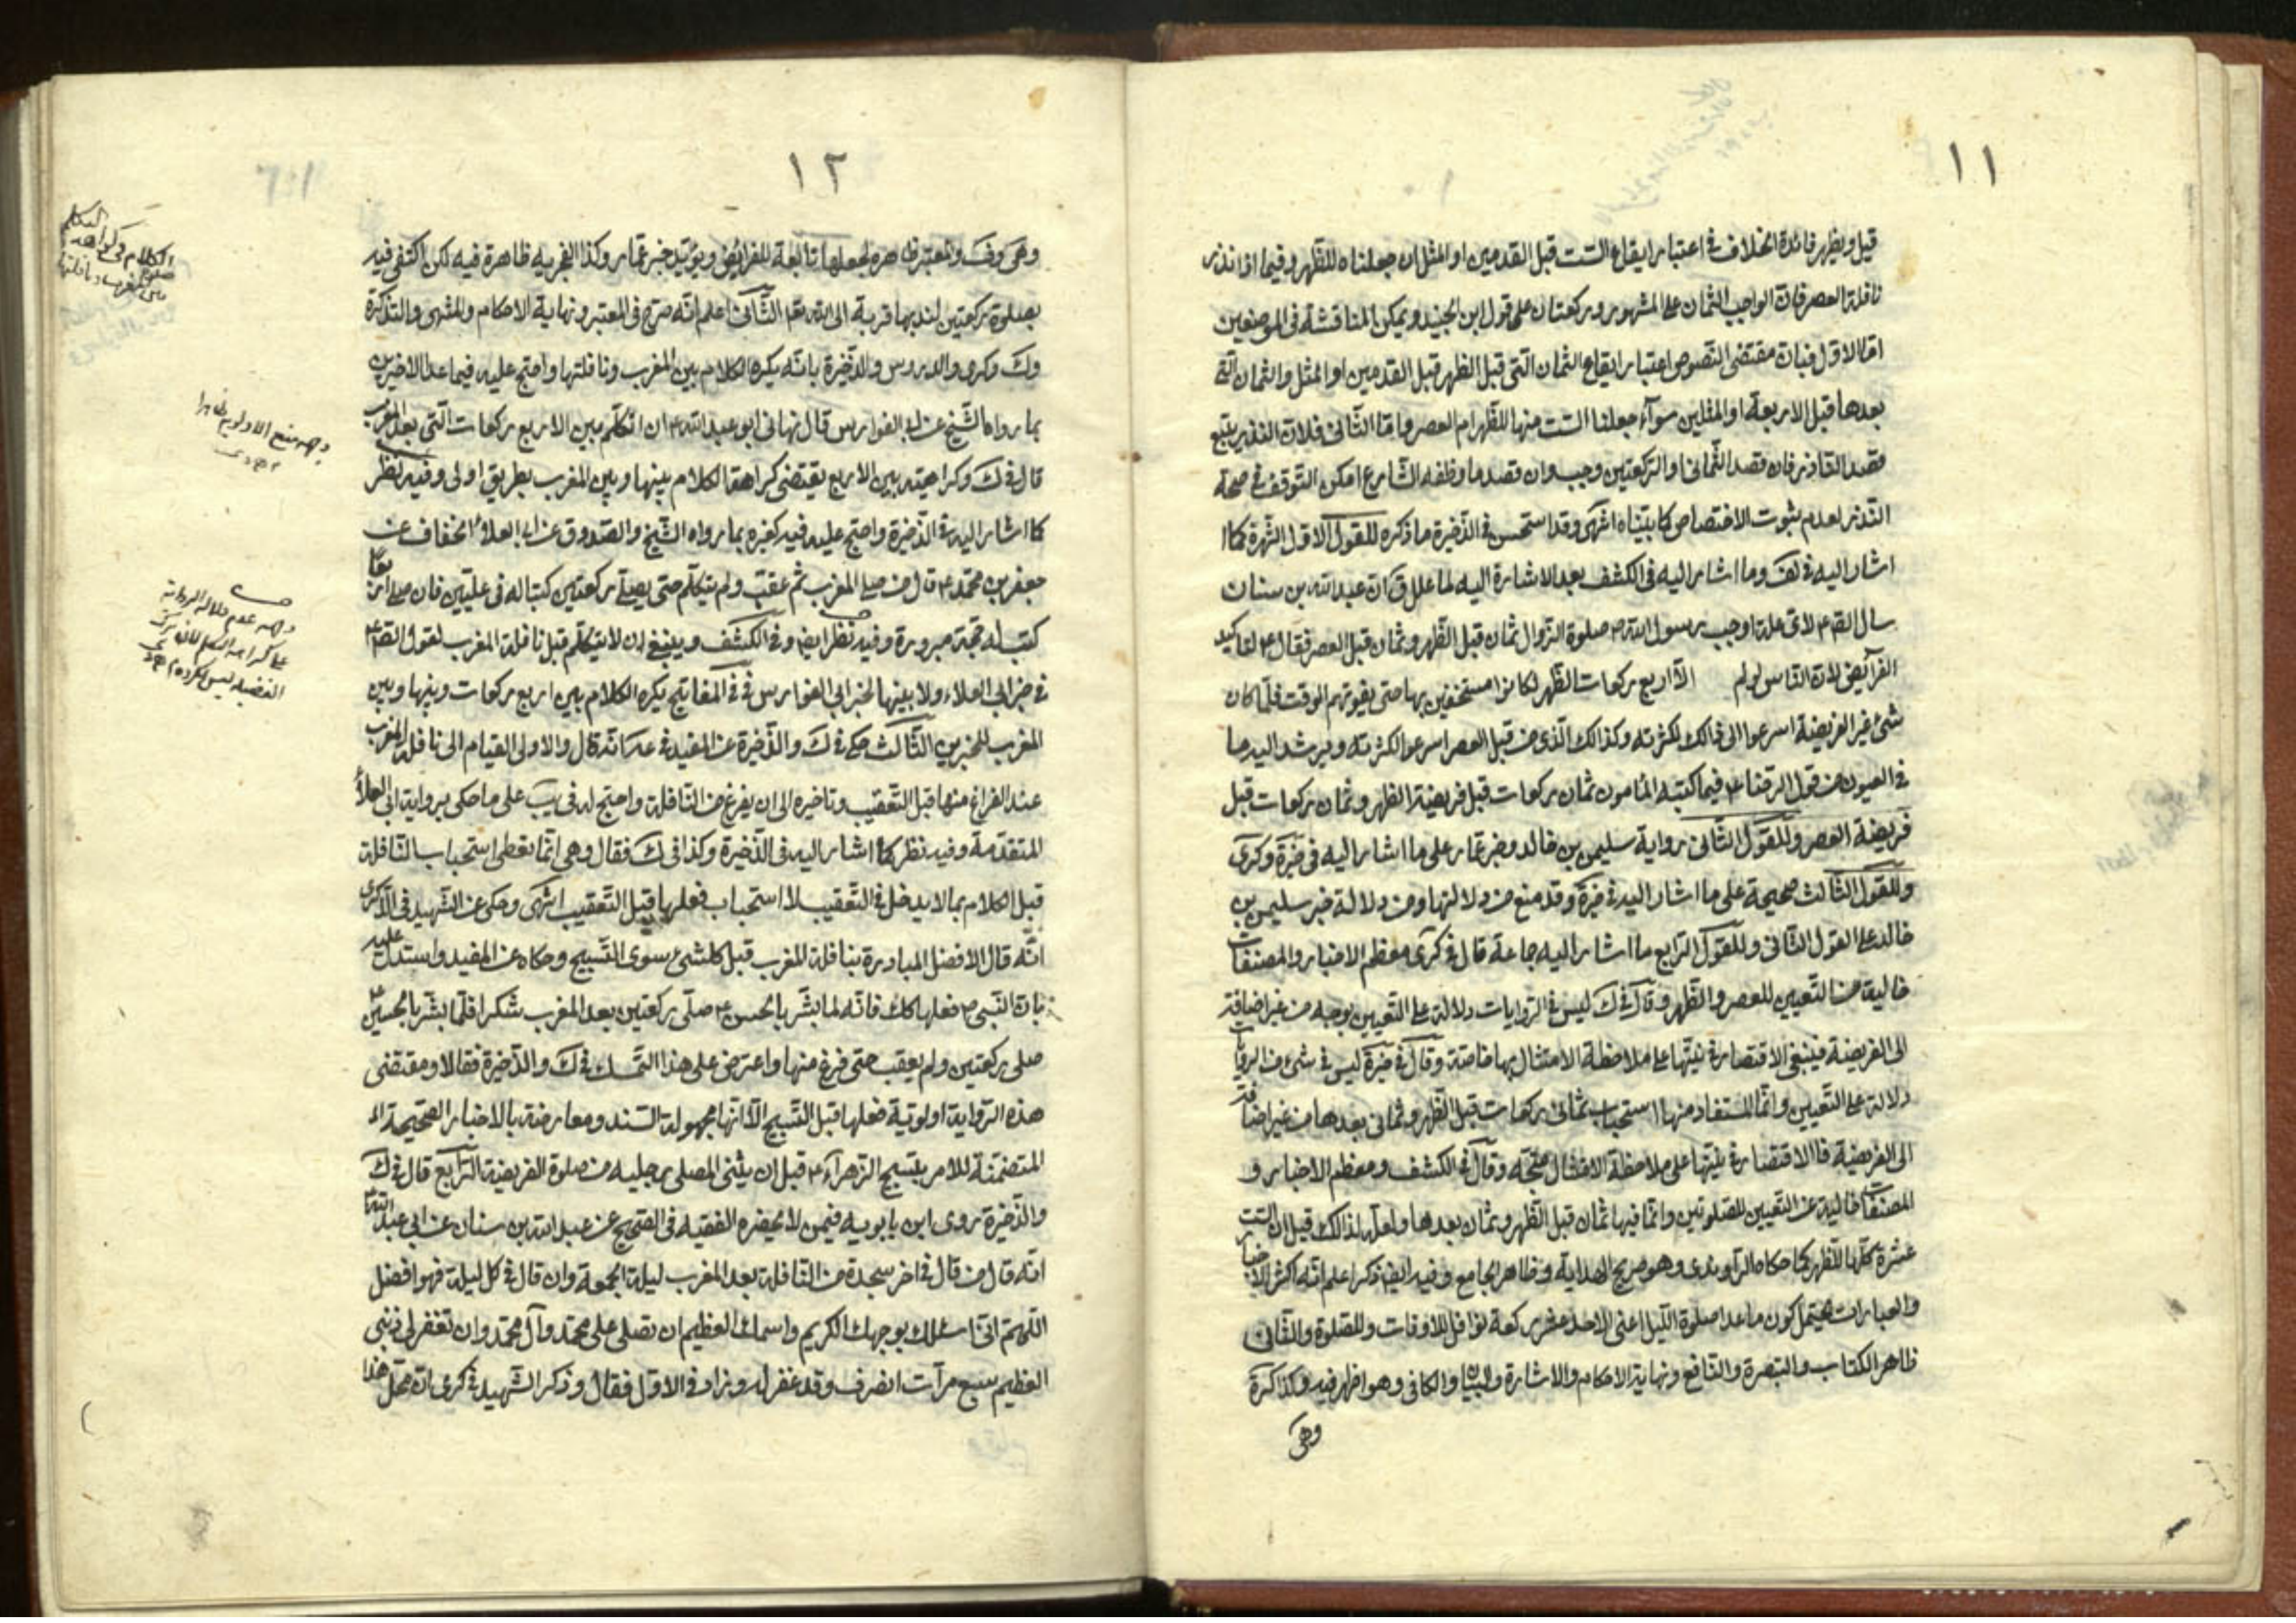 ١١
قيل ويظهر فائدة الخلاف في اعتبار ايقاع الست قبل القدمين او المثل ان جعلناه للظهر وفيما اذا نذر
نافلة العصر فان الواجب الثمان على المشهور وركعتان على قول ابن الجنيد ويمكن المناقشة في الموضعين
اما الاول فبان مقتضى النصوص اعتبار ايقاع الثمان التي قبل الظهر قبل القدمين او المثل والثمان التي
بعدها قبل الاربعة او المثلين سوآء جعلنا الست منها للظهر ام العصر واما الثاني فلان النذر يتبع
قصد الناذر فان قصد الثماني او الركعتين وجب وان قصد ما وظفه الشارع امكن التوقف في صحة
النذر لعدم ثبوت الاختصاص كما بيناه انتهى وقد استحسن في الذخيرة ما ذكره للقول الاول الشهرة كما
اشار اليه في لف وما اشار اليه في الكشف بعد الاشارة اليه لما علل ق ان عبد الله بن سنان
سال الصم لاى علة اوجب رسول الله ص صلوة الزوال ثمان قبل الظهر وثمان قبل العصر فقال ع لتاكيد
الفرآيض لان الناس لو لم الا اربع ركعات الظهر لكانوا مستخفين بها حتى يفوتهم الوقت فلما كان
شئ غير الفريضة اسرعوا الى ذالك لكثرته وكذالك الذى من قبل العصر اسرعوا لكثرته ويرشد اليه ما
في العيون من قول الرضا ع فيما كتبه المامون ثمان ركعات قبل فريضة الظهر وثمان ركعات قبل
فريضة العصر وللقول الثاني رواية سليمن بن خالد وخبر عمار على ما اشار اليه في خيرة وكرى
وللقول الثالث صحيحة على ما اشار اليه في خيرة وقد منع من دلالتها ومن دلالة خبر سليمن بن
خالد على القول الثاني وللقول الرابع ما اشار اليه جماعة قال في كرى معظم الاخبار والمصنفات
خالية من التعيين للعصر والظهر وقال في ك ليس في الروايات دلالة على التعيين بوجه من غير اضافة
الى الفريضة فينبغي الاقتصار في نيتها على ملاحظة الامتثال بها خاصة وقال في خيرة ليس في شئ من الروايات
دلالة على التعيين وانما المستفاد منها استحباب ثماني ركعات قبل الظهر وثماني بعدها من غير اضافة
الى الفريضة فالاقتصار في نيتها على ملاحظة الامتثال متجه وقال في الكشف ومعظم الاخبار و
المصنفات خالية عن التعيين للصلوتين وانما فيها ثمان قبل الظهر وثمان بعدها ولعله لذالك قيل ان الست
عشرة كلها للظهر كما حكاه الراوندى وهو صريح الهداية وظاهر الجامع وفيه ايض ذكر اعلم انه اكثر الاخبار
والعبارات يحتمل كون ما عدا صلوة الليل اعنى الاحد عشر ركعة نوافل للاوقات وللصلوة والثاني
ظاهر الكتاب والتبصرة والنافع ونهاية الاحكام والاشارة والبيان والكافي وهو اظهر فيه وكذا كرة
وهى
١٢
وهى وف والمعتبر ظاهره لجعلها تابعة للفرائض ويؤيد خبر عمار وكذا الفجريه ظاهرة فيه لكن اكتفى فيه
بصلوة ركعتين لندبها قربة الى الله تعا الثاني اعلم انه صرح في المعتبر ونهاية الاحكام والمنتهى والتذكرة
وك وكرى والدروس والذخيرة بانه يكره الكلام بين المغرب ونافلتها واحتج عليه فيما عدا الاخيرين
بما رواه الشيخ عن ابى الفوارس قال نهانى ابو عبد الله ع ان اتكلم بين الاربع ركعات التى بعد المغرب
قال في ك وكراهيته بين الاربع يقتضى كراهة الكلام بينها وبين المغرب بطريق اولى وفيه نظر
كما اشار اليه في الذخيرة واحتج عليه فيه كغيره بما رواه الشيخ والصدوق عن ابى العلاء الخفاف عن
جعفر بن محمد ع قال من صلى المغرب ثم عقب ولم يتكلم حتى يصلى ركعتين كتبا له في عليين فان صلى اربعا
كتب له حجة مبرورة وفيه نظر ايض وفي الكشف وينبغى ان لا يتكلم قبل نافلة المغرب لقول الصم
في خبر ابى العلاء ولا بينها لخبر ابى الفوارس في المفاتيح يكره الكلام بين اربع ركعات وبينها وبين
المغرب للخبرين الثالث حكى في ك والذخيرة عن المفيد في عة انه قال والاولى القيام الى نافلة المغرب
عند الفراغ منها قبل التعقيب وتاخيره الى ان يفرغ من النافلة واحتج له في يب على ما حكى برواية ابى العلاء
المتقدمة وفيه نظر كما اشار اليه في الذخيرة وكذا في ك فقال وهى انما تعطى استحباب النافلة
قبل الكلام بما لا يدخل في التعقيب لا استحباب فعلها قبل التعقيب انتهى وحكى عن الشهيد في الذكرى
انه قال الافضل المبادرة بنافلة المغرب قبل كلشئ سوى التسبيح وحكاه عن المفيد واستدل عليه
بان النبى ص فعلها كك فانه لما بشر بالحسن ع صلى ركعتين بعد المغرب شكرا فلما بشر بالحسين ع
صلى ركعتين ولم يعقب حتى فرغ منها واعترض على هذا التمسك في ك والذخيرة فقالا ومقتضى
هذه الرواية اولوية فعلها قبل التسبيح الا انها مجهولة السند ومعارضة بالاخبار الصحيحة
المتضمنة للامر بتسبيح الزهرآء ع قبل ان يثنى المصلى رجليه من صلوة الفريضة الرابع قال في ك
والذخيرة روى ابن بابويه فيمن لا يحضره الفقيه في الصحيح عن عبد الله بن سنان عن ابى عبد الله ع
انه قال من قال في اخر سجدة من النافلة بعد المغرب ليلة الجمعة وان قال في كل ليلة فهو افضل
اللهم انى اسئلك بوجهك الكريم واسمك العظيم ان تصلى على محمد وآل محمد وان تغفر لى ذنبى
العظيم سبع مرات انصرف وقد غفر له وزاد في الاول فقال وذكر الشهيد في كرى ان محل هذا
وجه منع الاولوية
وجه عدم دلالة الرواية
على كراهة التكلم لان ترك
الفضيلة ليس بمكروه